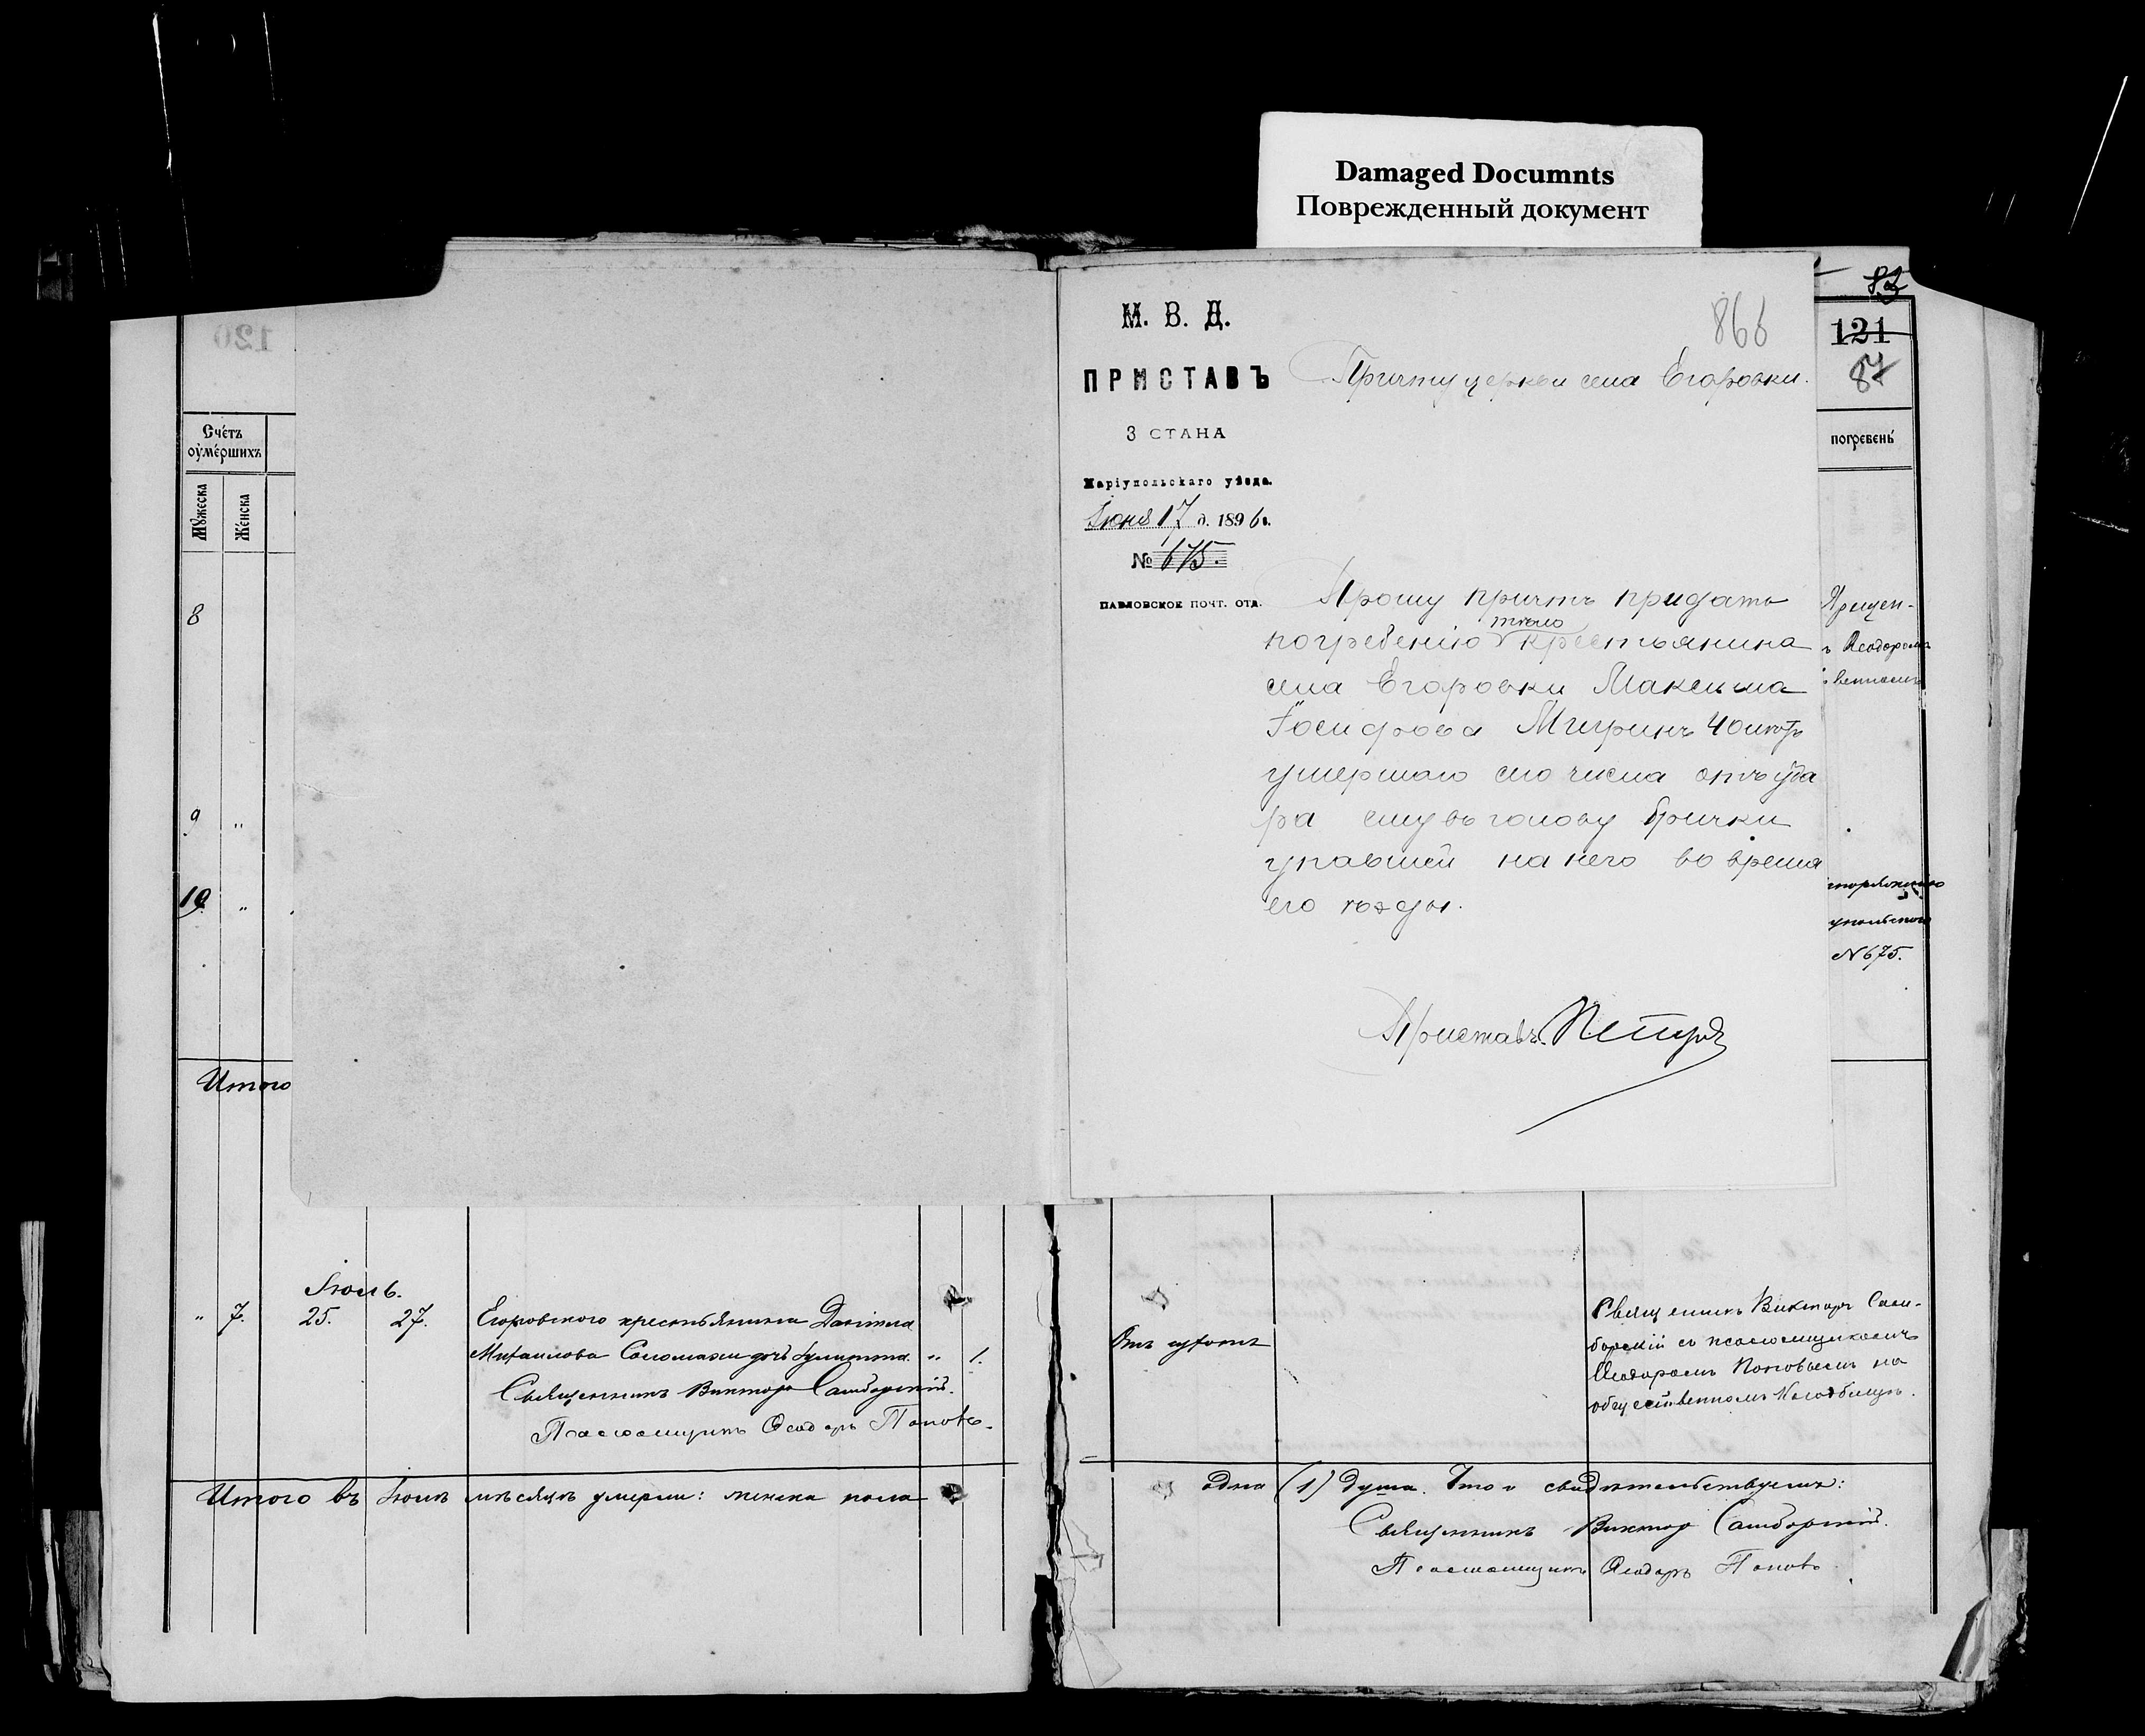 Damaged Documnts
Поврежденный документ
83
120
Счетъ оумершихъ
Мужеска
Женска
8
9 "
10. "
Итого
М. В. Д.
ПРИСТАВЪ
3 СТАНА
Маріупольскаго уѣзда.
Іюня 17 д. 1896 г.
№ 675.
ПАВЛОВСКОЕ ПОЧТ. ОТД.
Причту церкви села Егоровки.
Прошу причтъ придать
погребенію тѣло крестьянина
села Егоровки Максима
Іосифова 40 лѣтъ
умершаго сего числа отъ уда
ра ему въ голову брички
упавшей на него во время
его ѣзды.
Приставъ
121
87
погребенъ
Ѳеодоромъ
№ 675.
Іюль.
" 7. 25. 27. Егоровского крестьянина Даніила
Михайлова дочь " 1.
Священникъ Викторъ Самборскій.
Псаломщикъ Ѳеодоръ Поповъ.
Священникъ Викторъ Сам-
борскій съ псаломщикомъ
Ѳеодоромъ Поповымъ на
общественномъ кладбищѣ.
Итого въ Іюлѣ мѣсяцѣ умерли: женска пола
одна (1) душа. Что и свидѣтельствуемъ:
Священникъ Викторъ Самборскій.
Псаломщикъ Ѳеодоръ Поповъ